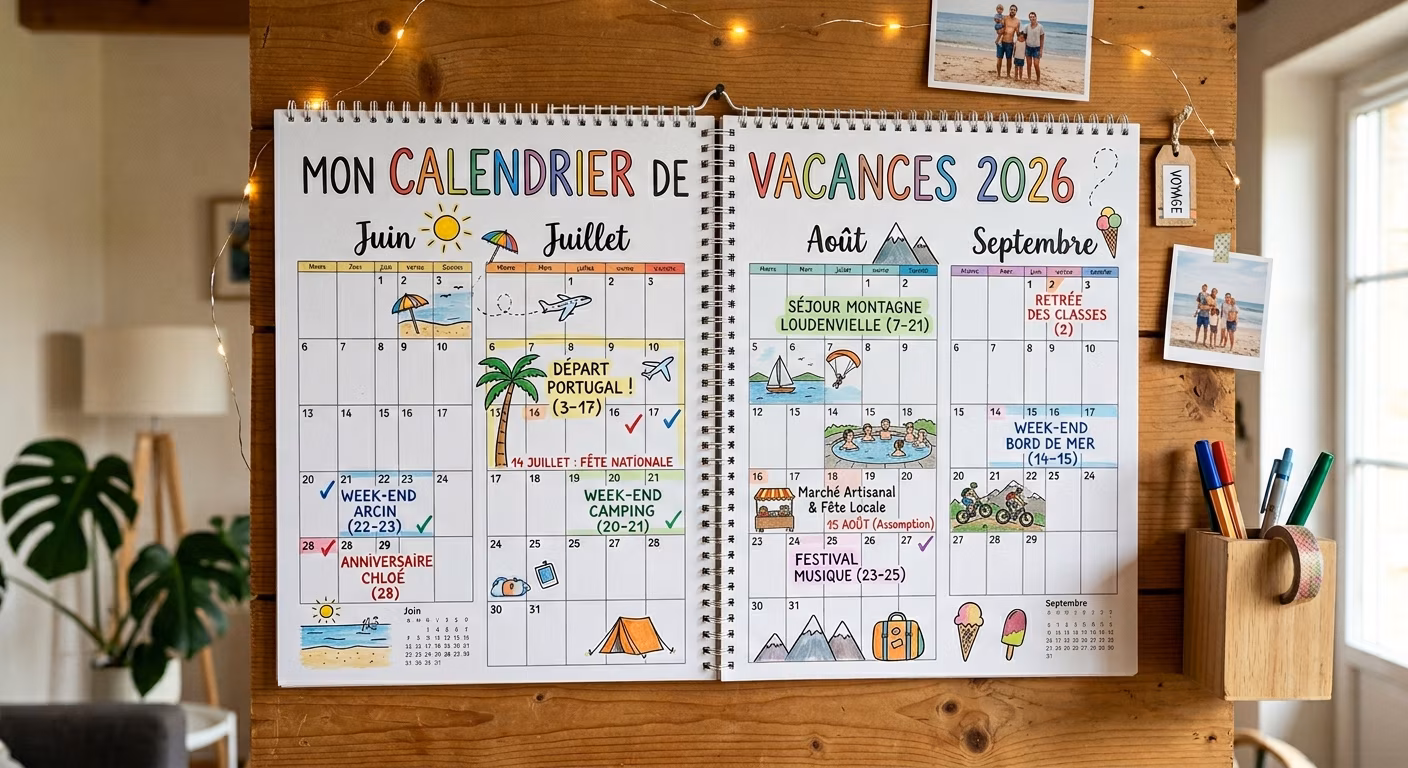 MON CALENDRIER DE
VACANCES 2026
VOYAGE
Juin
1 2 3
6 7 8 9 10
13 14 15 16 17
20 21 22 23 24
WEEK-END
ARCIN
(22-23)
28 28 29
ANNIVERSAIRE
CHLOÉ
(28)
Join
Juillet
1 2 3
6 7 8 9 10
DÉPART
PORTUGAL !
(3-17)
15 16 16 17
14 JUILLET : FÊTE NATIONALE
17 18 19 20 21
WEEK-END
CAMPING
(20-21)
24 25 25 27 28
30 31
Août
1 2
SÉJOUR MONTAGNE
LOUDENVIELLE (7-21)
5 6 7 8 9
12 15 14 15 18
16 17 18 20 21
Marché Artisanal
& Fête Locale
15 AOÛT (Assomption)
23 24 25 26 27
FESTIVAL
MUSIQUE (23-25)
30 31
Septembre
1 2 3
RETRÉE
DES CLASSES
(2)
6 7 8 9 10
15 14 15 16 17
WEEK-END
BORD DE MER
(14-15)
20 21 22 23 24
27 28 29
Septembre